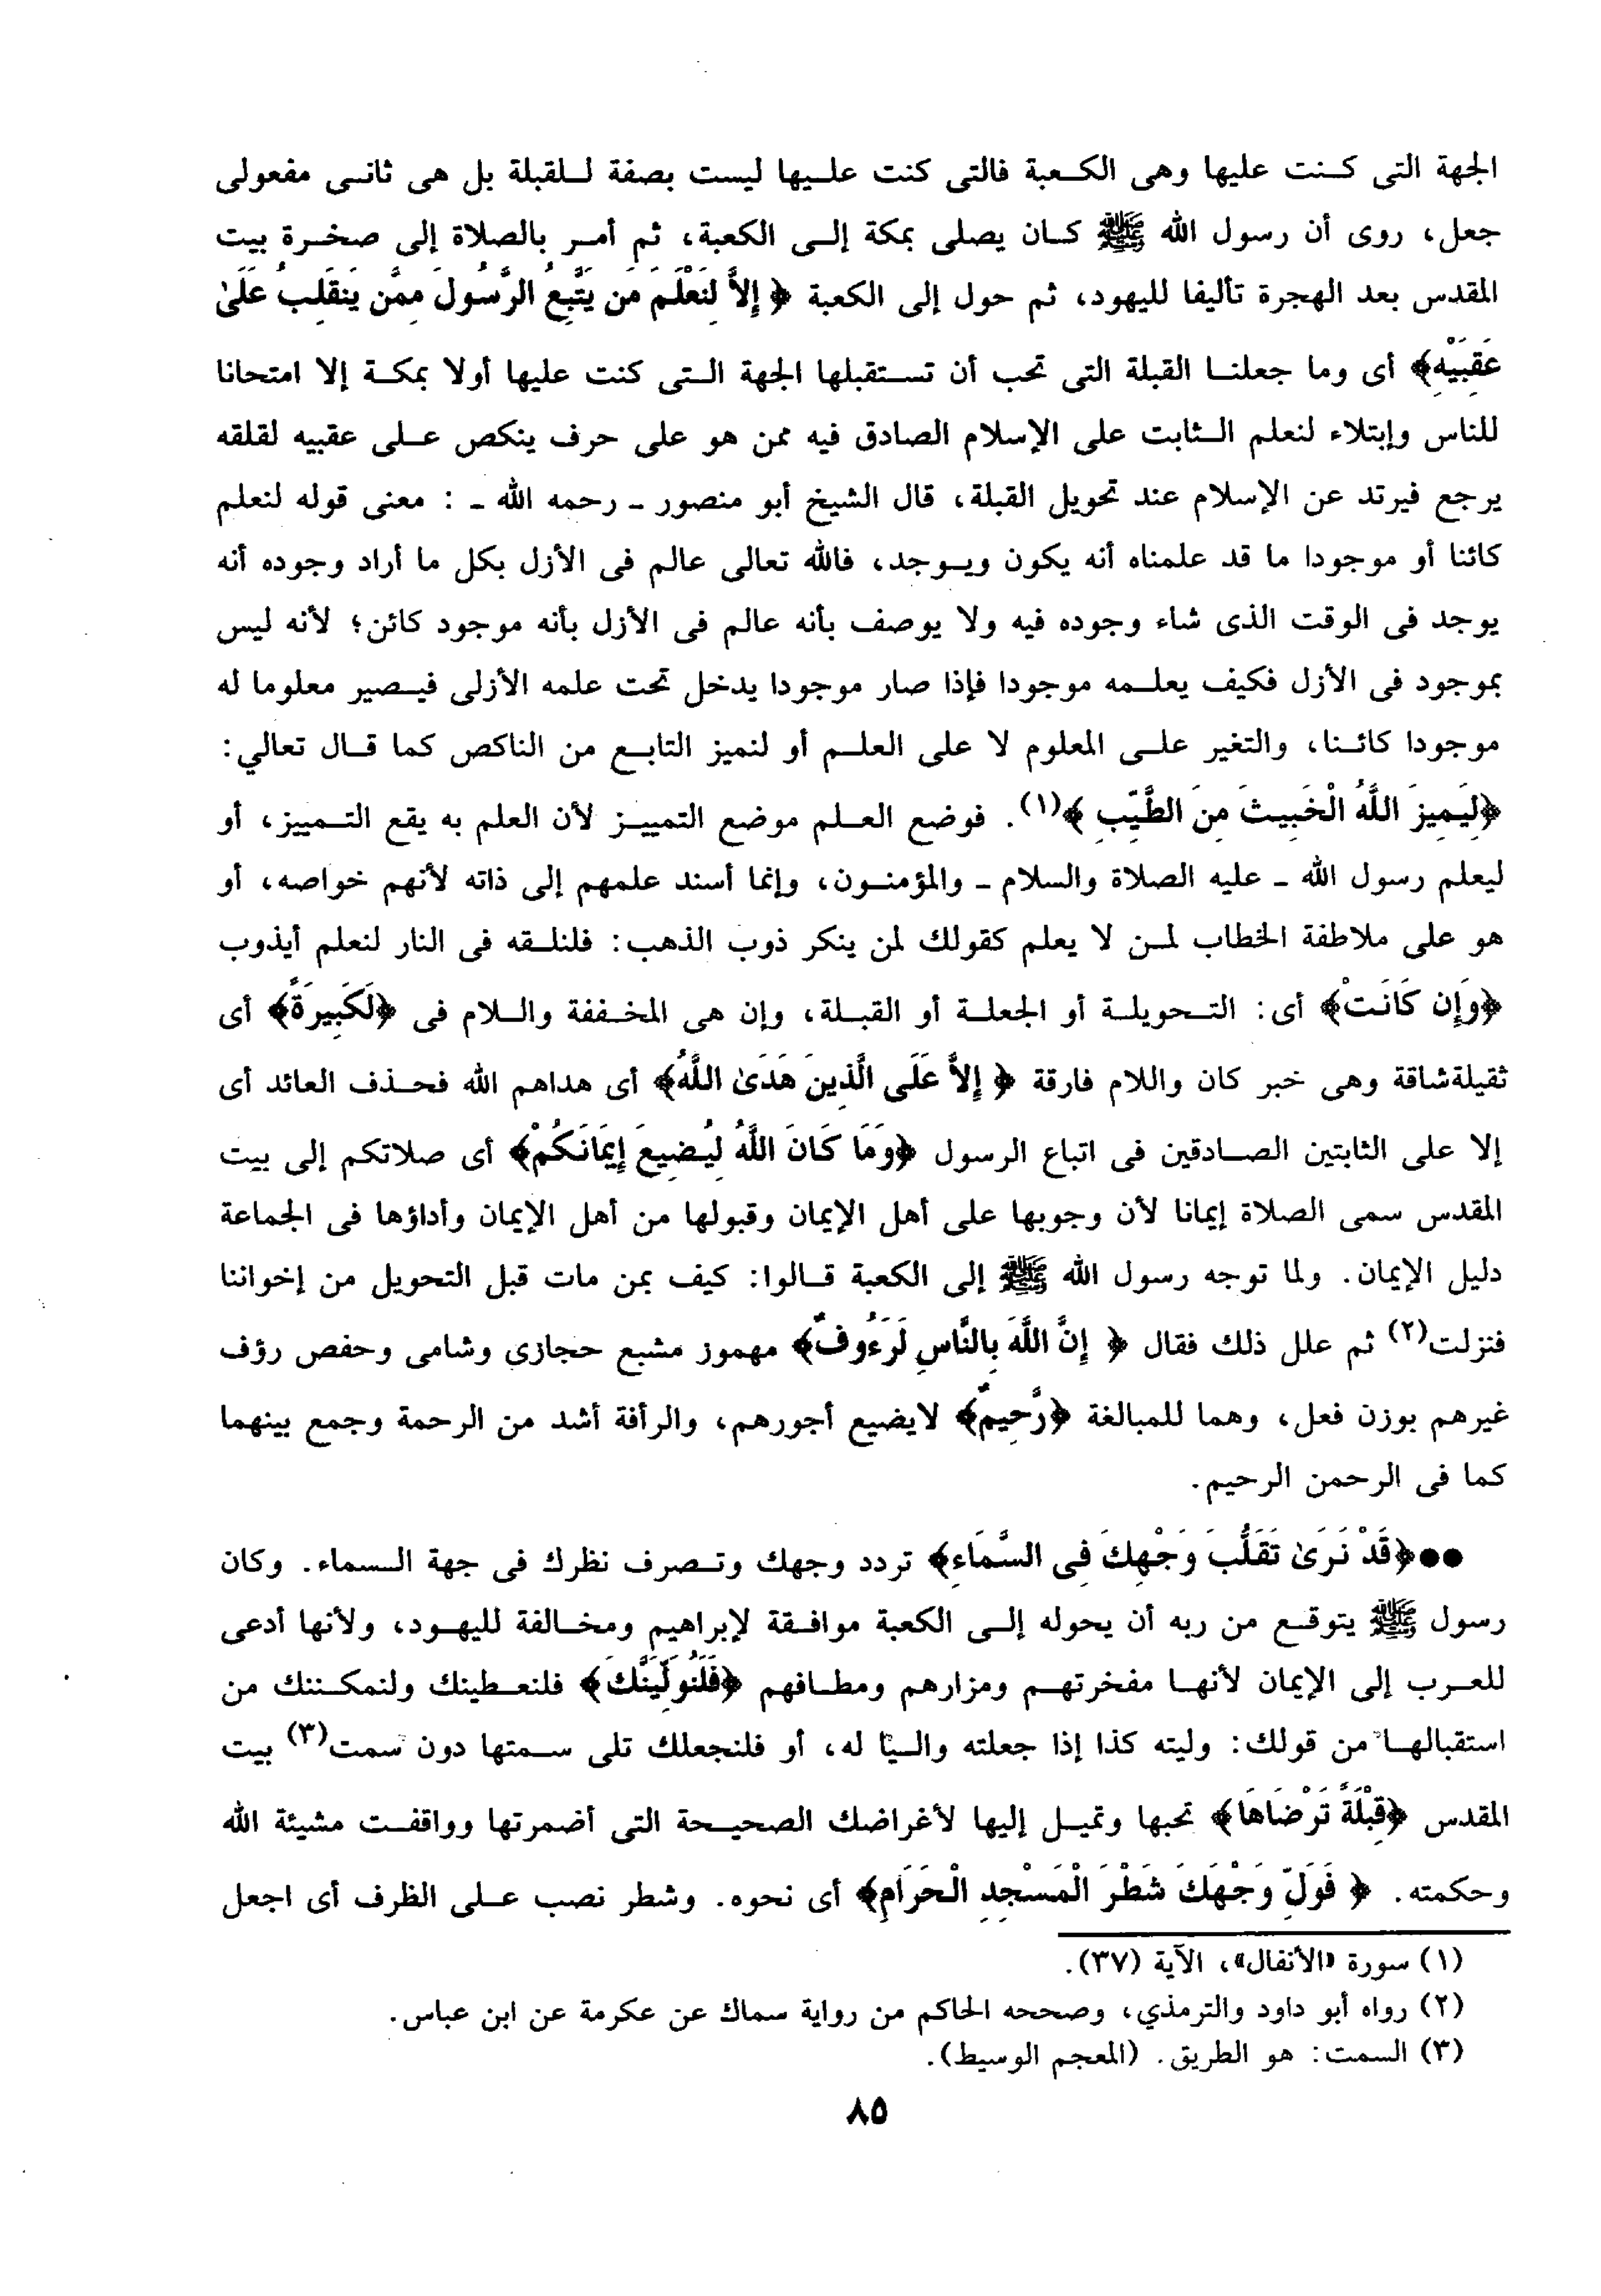 الجهة التى كنت عليها وهى الكعبة فالتى كنت عليها ليست بصفة للقبلة بل هى ثانى مفعولى
جعل، روى أن رسول الله ﷺ كان يصلى بمكة إلى الكعبة، ثم أمر بالصلاة إلى صخرة بيت
المقدس بعد الهجرة تأليفا لليهود، ثم حول إلى الكعبة ﴿ إِلاَّ لِنَعْلَمَ مَن يَتَّبِعُ الرَّسُولَ مِمَّن يَنقَلِبُ عَلَىٰ
عَقِبَيْهِ﴾ أى وما جعلنا القبلة التى تحب أن تستقبلها الجهة التى كنت عليها أولا بمكة إلا امتحانا
للناس وإبتلاء لنعلم الثابت على الإسلام الصادق فيه ممن هو على حرف ينكص على عقبيه لقلقه
يرجع فيرتد عن الإسلام عند تحويل القبلة، قال الشيخ أبو منصور ـ رحمه الله ـ : معنى قوله لنعلم
كائنا أو موجودا ما قد علمناه أنه يكون ويوجد، فالله تعالى عالم فى الأزل بكل ما أراد وجوده أنه
يوجد فى الوقت الذى شاء وجوده فيه ولا يوصف بأنه عالم فى الأزل بأنه موجود كائن؛ لأنه ليس
بموجود فى الأزل فكيف يعلمه موجودا فإذا صار موجودا يدخل تحت علمه الأزلى فيصير معلوما له
موجودا كائنا، والتغير على المعلوم لا على العلم أو لنميز التابع من الناكص كما قال تعالي:
﴿لِيَمِيزَ اللَّهُ الْخَبِيثَ مِنَ الطَّيِّبِ ﴾(١). فوضع العلم موضع التمييز لأن العلم به يقع التمييز، أو
ليعلم رسول الله ـ عليه الصلاة والسلام ـ والمؤمنون، وإنما أسند علمهم إلى ذاته لأنهم خواصه، أو
هو على ملاطفة الخطاب لمن لا يعلم كقولك لمن ينكر ذوب الذهب: فلنلقه فى النار لنعلم أيذوب
﴿وَإِن كَانَتْ﴾ أى: التحويلة أو الجعلة أو القبلة، وإن هى المخففة واللام فى ﴿لَكَبِيرَةً﴾ أى
ثقيلة شاقة وهى خبر كان واللام فارقة ﴿ إِلاَّ عَلَى الَّذِينَ هَدَى اللَّهُ﴾ أى هداهم الله فحذف العائد أى
إلا على الثابتين الصادقين فى اتباع الرسول ﴿وَمَا كَانَ اللَّهُ لِيُضِيعَ إِيمَانَكُمْ﴾ أى صلاتكم إلى بيت
المقدس سمى الصلاة إيمانا لأن وجوبها على أهل الإيمان وقبولها من أهل الإيمان وأداؤها فى الجماعة
دليل الإيمان. ولما توجه رسول الله ﷺ إلى الكعبة قالوا: كيف بمن مات قبل التحويل من إخواننا
فنزلت(٢) ثم علل ذلك فقال ﴿ إِنَّ اللَّهَ بِالنَّاسِ لَرَءُوفٌ﴾ مهموز مشبع حجازى وشامى وحفص رؤف
غيرهم بوزن فعل، وهما للمبالغة ﴿رَّحِيمٌ﴾ لايضيع أجورهم، والرأفة أشد من الرحمة وجمع بينهما
كما فى الرحمن الرحيم.
●●﴿قَدْ نَرَىٰ تَقَلُّبَ وَجْهِكَ فِى السَّمَاءِ﴾ تردد وجهك وتصرف نظرك فى جهة السماء. وكان
رسول ﷺ يتوقع من ربه أن يحوله إلى الكعبة موافقة لإبراهيم ومخالفة لليهود، ولأنها أدعى
للعرب إلى الإيمان لأنها مفخرتهم ومزارهم ومطافهم ﴿فَلَنُوَلِّيَنَّكَ﴾ فلنعطينك ولنمكننك من
استقبالها من قولك: وليته كذا إذا جعلته واليا له، أو فلنجعلك تلى سمتها دون سمت(٣) بيت
المقدس ﴿قِبْلَةً تَرْضَاهَا﴾ تحبها وتميل إليها لأغراضك الصحيحة التى أضمرتها وواقفت مشيئة الله
وحكمته. ﴿ فَوَلِّ وَجْهَكَ شَطْرَ الْمَسْجِدِ الْحَرَامِ﴾ أى نحوه. وشطر نصب على الظرف أى اجعل
(١) سورة «الأنفال»، الآية (٣٧).
(٢) رواه أبو داود والترمذي، وصححه الحاكم من رواية سماك عن عكرمة عن ابن عباس.
(٣) السمت: هو الطريق. (المعجم الوسيط).
٨٥